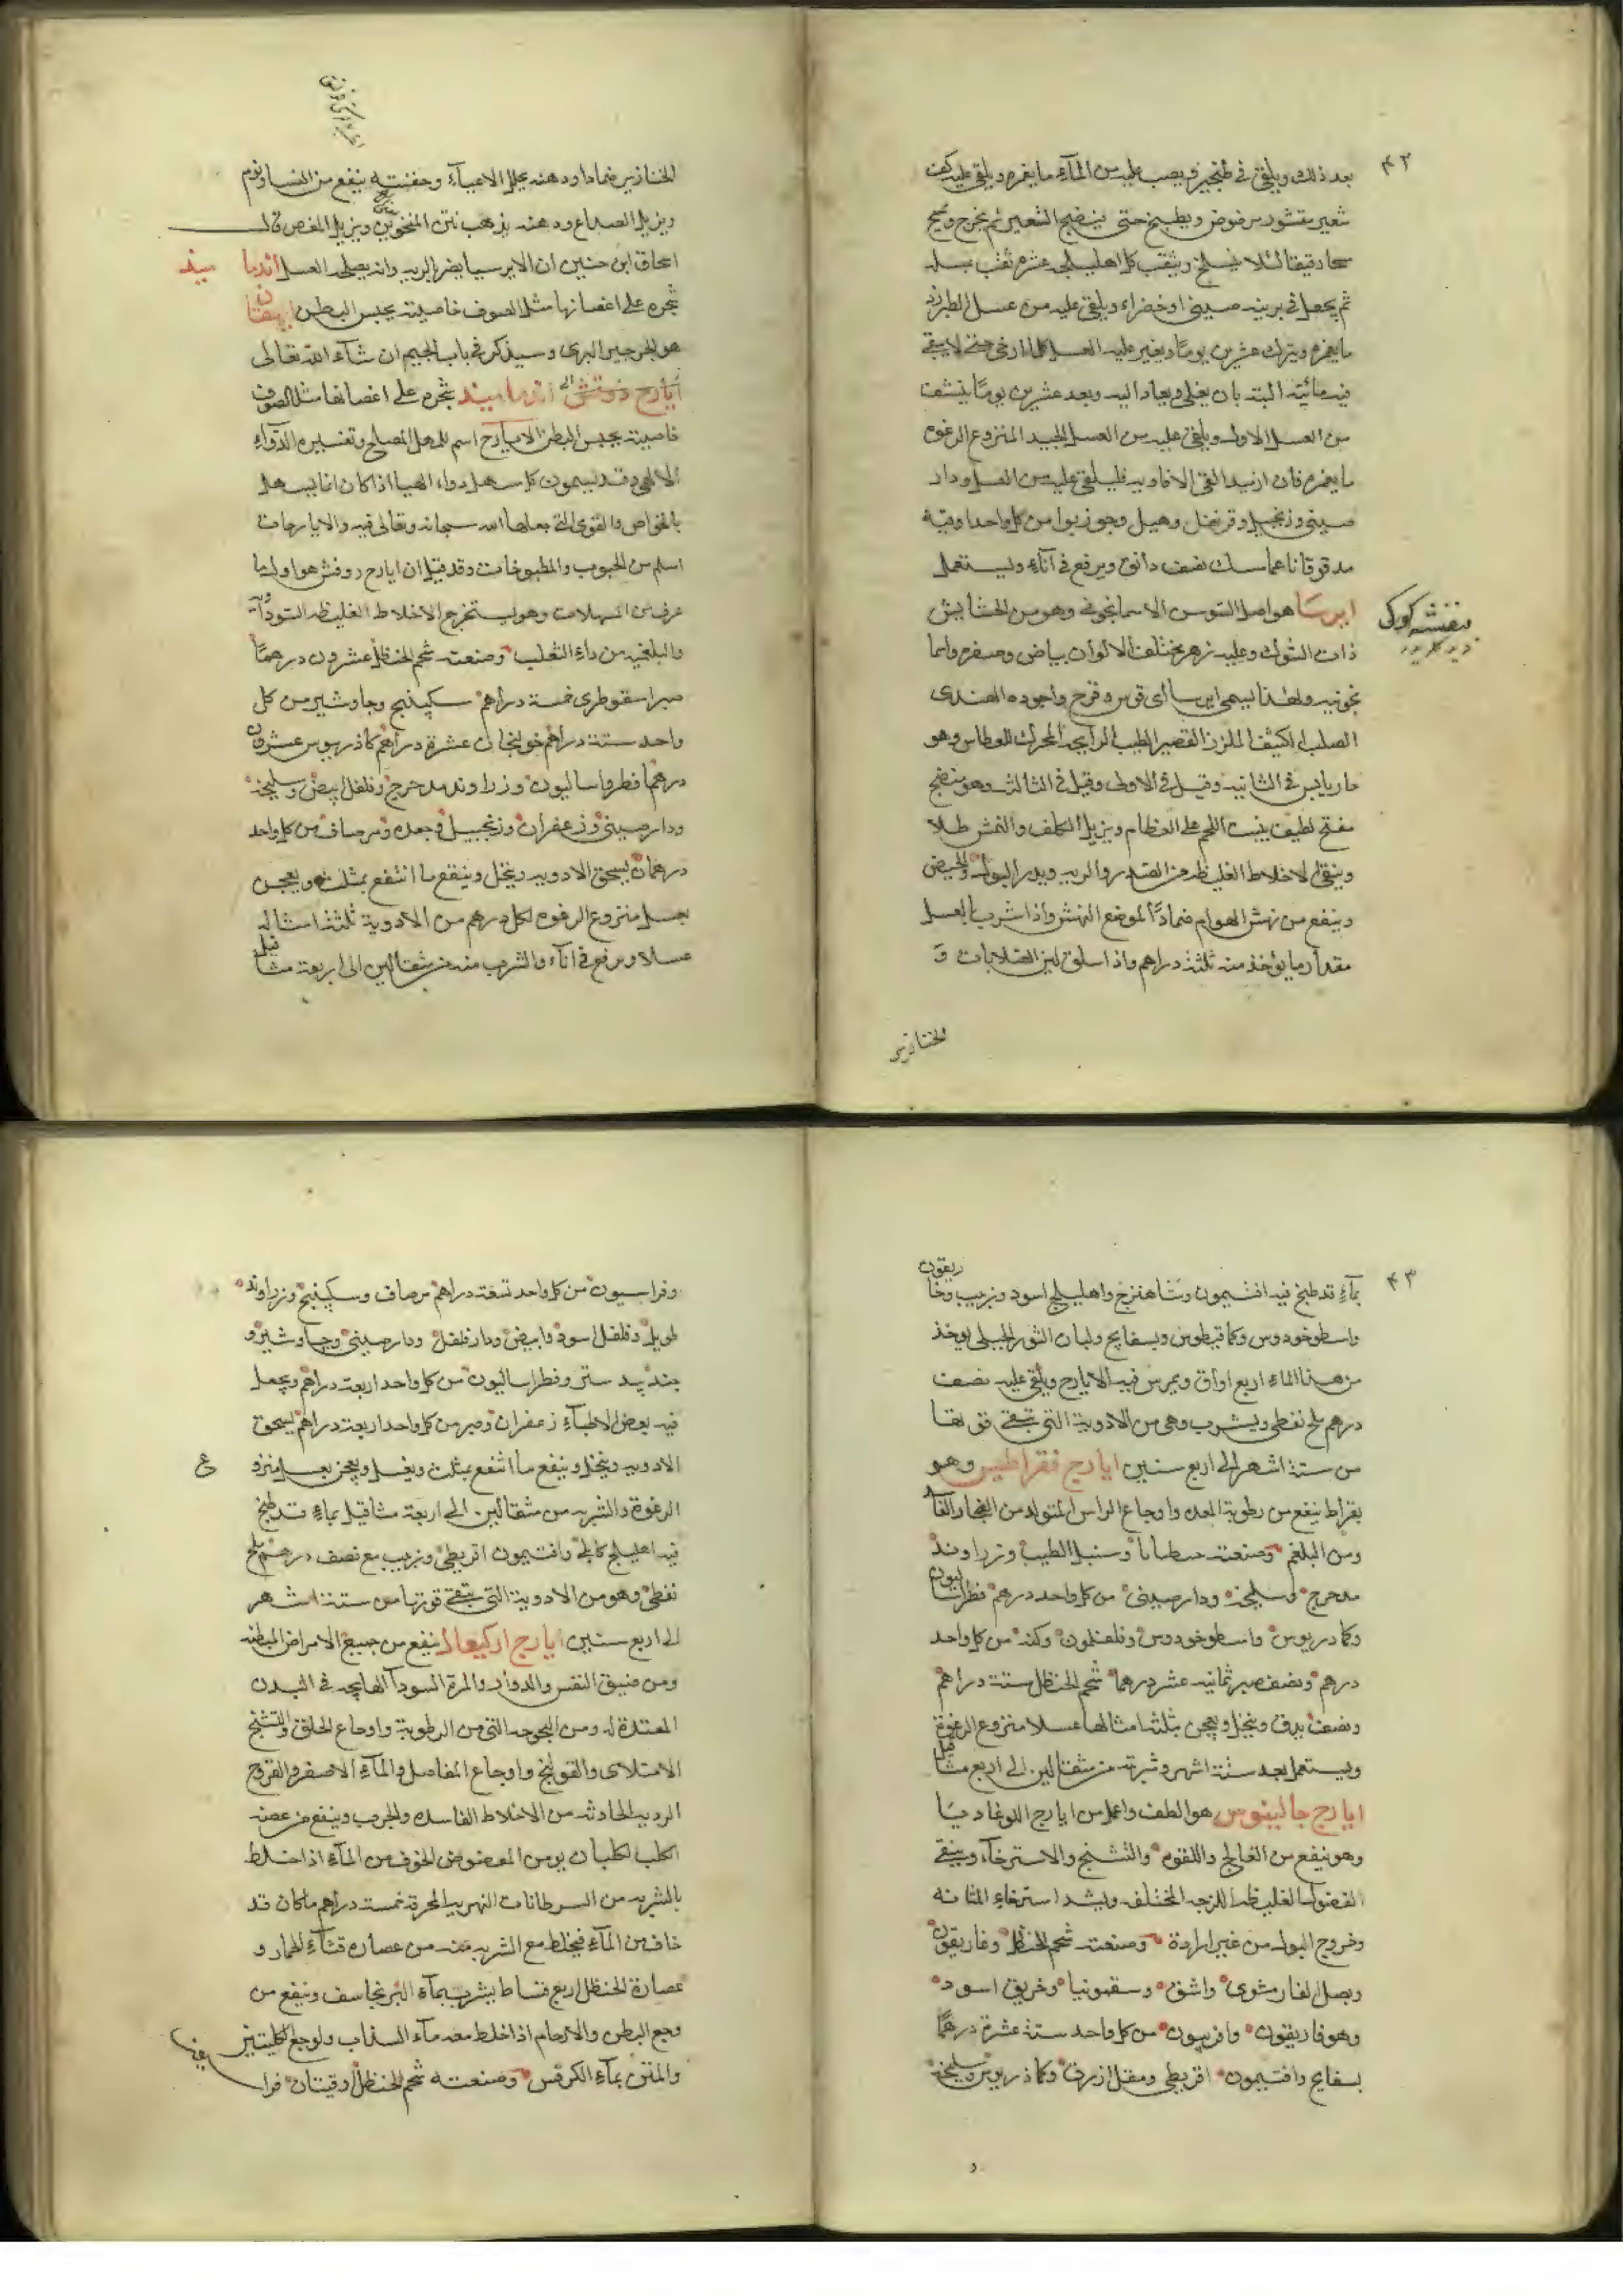 ۴۲
بعد ذلك ويلقى في طنجير ويصب عليه من المآء ما يغمره ويلقى عليه كف
شعير مقشور مرضوض ويطبخ حتى ينضج الشعير ثم يخرج ويمسح
مسحا رقيقا لئلا ينسلخ ويثقب كل اهليلجه عشرة ثقب بسله
ثم يجعل في برنيه صيني او خضراء ويلقى عليه من عسل الطبرزد
ما يغمره ويترك عشرين يوما ويغير عليه العسل كلما ارخى حتى لا يبقى
فيه مائيته البته بان يغلى ويعاد اليه وبعد عشرين يوما ينشف
من العسل الاول ويلقى عليه من العسل الجيد المنزوع الرغوه
ما يغمره فان اريد القي الافاويه فليلقى عليه من العسل ودار
صيني وزنجبيل وقرنفل وهيل وجوزبوا من كل واحد اوقيه
مدقوقا ناعما مسك نصف دانق ويرفع في انآء ويستعمل
ايرسا هو اصل السوسن الاسمانجوني وهو من الحشايش
بنفشه كوكى
ذات الشوك وعليه زهر مختلف الالوان بياض وصفره واسما
نجونيه ولهذا يسمى ايرسا اى قوس وقزح واجوده الهندى
الصلب الكثيف الملزز القصير الطيب الرايحه المحرك للعطاس وهو
حار يابس في الثانيه وقيل في الاولى وقيل في الثالثه وهو منضج
مفتح لطيف ينبت اللحم على العظام ويزيل الكلف والنمش طلا
وينقى الاخلاط الغليظه من الصدر والريه ويدر البول والحيض
وينفع من نهش الهوام ضمادًا لموضع النهش واذا شرب بالعسل
مقدار ما يؤخذ منه ثلثة دراهم واذا سلق لين الصلابات و
الخنازير
الخنازير ضمادا ودهنه يحلل الاعيآء وحقنته ينفع من النسا وينوم
ويزيل الصداع ودهنه يذهب نتن المنخرين ويزيل المغص قال
اسحاق ابن حنين ان الايرسا يضر بالريه وانه يصلحه العسل اندما سيد
شجره على اغصانها مثل الصوف خاصيته يحبس البطن ايهقان
هو الجرجير البرى وسيذكر في باب الجيم ان شآء الله تعالى
ايارج اندماسيد شجره على اغصانها مثل الصوف
خاصيته يحبس البطن الايارج اسم للمسهل المصلح وتفسيره الدوآء
الالهي وقد يسمون كل مسهل دواء الهيا اذا كان انما يسهل
بالخواص والقوى التي جعلها الله سبحانه وتعالى فيه والايارجات
اسلم من الحبوب والمطبوخات وقد قيل ان ايارج روفش هو اول ما
عرف من المسهلات وهو يستخرج الاخلاط الغليظه السودآويه
والبلغميه من داء الثعلب وصنعته شحم الحنظل عشرون درهما
صبر اسقوطرى خمسة دراهم سكبينج وجاوشير من كل
واحد ستة دراهم خولنجان عشرة دراهم كاذريوس عشرون
درهما فطراساليون وزراوند مدحرج وفلفل ابيض وسليخه
ودارصيني وزعفران وزنجبيل وجعده ومر صاف من كل واحد
درهمان يسحق الادويه وينخل وينقع ما انتقع بمثلث ويعجن
بعسل منزوع الرغوه لكل درهم من الادوية ثلثة امثاله
عسلا ويرفع في انآء والشرب منه من مثقالين الى اربعة مثاقيل
۴۳
بمآء قد طبخ فيه افتيمون وشاهترج واهليلج اسود وزبيب وغاريقون
واسطوخودوس وكمافيطوس وبسفايج ولسان الثور الجبلى يوخذ
من هذا الماء اربع اواق ويمرس فيه الايارج ويلقى عليه نصف
درهم ملح نفطى ويشرب وهى من الادوية التي تبقى قوتها
من ستة اشهر الى اربع سنين ايارج فقراطيس وهو
بقراط ينفع من رطوبة المعده واوجاع الراس المتولد من البخار
ومن البلغم وصنعته وسنبل الطيب وزراوند
مدحرج وسليخه ودارصيني من كل واحد درهم فطراساليون
وكمادريوس واسطوخودوس من كل واحد
درهم ونصف صبر ثمانيه عشر درهما شحم الحنظل ستة دراهم
ونصف يدق وينخل ويعجن بثلثة امثالها عسلا منزوع الرغوة
ويستعمل بعد ستة اشهر وشربته من مثقالين الى اربع مثاقيل
ايارج جالينوس هو الطف واعمل من ايارج اللوغاديا
وهو ينفع من الفالج واللقوه والتشنج والاسترخآء وينقى
الفضول الغليظه اللزجه المختلفه ويشد استرخاء المثانه
وخروج البول من غير ارادة وصنعته شحم الحنظل وغاريقون
وبصل الفار مشوى واشق وسقمونيا وخربق اسود
وهوفاريقون وافربيون من كل واحد ستة عشرة درهما
بسفايج وافتيمون اقريطى ومقل ازرق وكماذريوس وسليخه
وفراسيون من كل واحد تسعة دراهم مر صاف وسكبينج وزراوند
طويل وفلفل اسود وابيض ودارفلفل ودارصيني وجاوشير و
جندبيدستر وفطراساليون من كل واحد اربعة دراهم ويجعل
فيه بعض الاطبآء زعفران وصبر من كل واحد اربعة دراهم يسحق
الادويه وينخل وينقع ما انتقع بمثلث ويغسل ويعجن بعسل منزوع
الرغوة والشربه من مثقالين الى اربعة مثاقيل بمآء قد طبخ
فيه اهليلج كابلى وافتيمون اقريطى وزبيب مع نصف درهم ملح
نفطى وهو من الادوية التي تبقى قوتها من ستة اشهر
الى اربع سنين ايارج اركيغانيس ينفع من جميع الامراض الباطنه
ومن ضيق النفس والدوار والمرة السودآ الهايجه في البدن
ومن البحوحه التي من الرطوبة واوجاع الحلق والتشنج
الامتلاى والقولنج واوجاع المفاصل والمآء الاصفر والقروح
الرديه الحادثه من الاخلاط الفاسده والجرب وينفع من عضه
الكلب الكلب بان يومن المعضوض الخوف من المآء اذا خلط
بالشربه من السرطانات النهريه المحرقه خمسة دراهم ما كان قد
خاف من المآء فيخلط مع الشربه منه من عصاره قثآء الحمار و
عصارة الحنظل اربع قساط يشرب بمآء البرنجاسف وينفع من
وجع البطن والارحام اذا خلط معه مآء السذاب ولوجع الكليتين
والمتن بمآء الكرفس وصنعته شحم الحنظل اوقيتان فراسيون